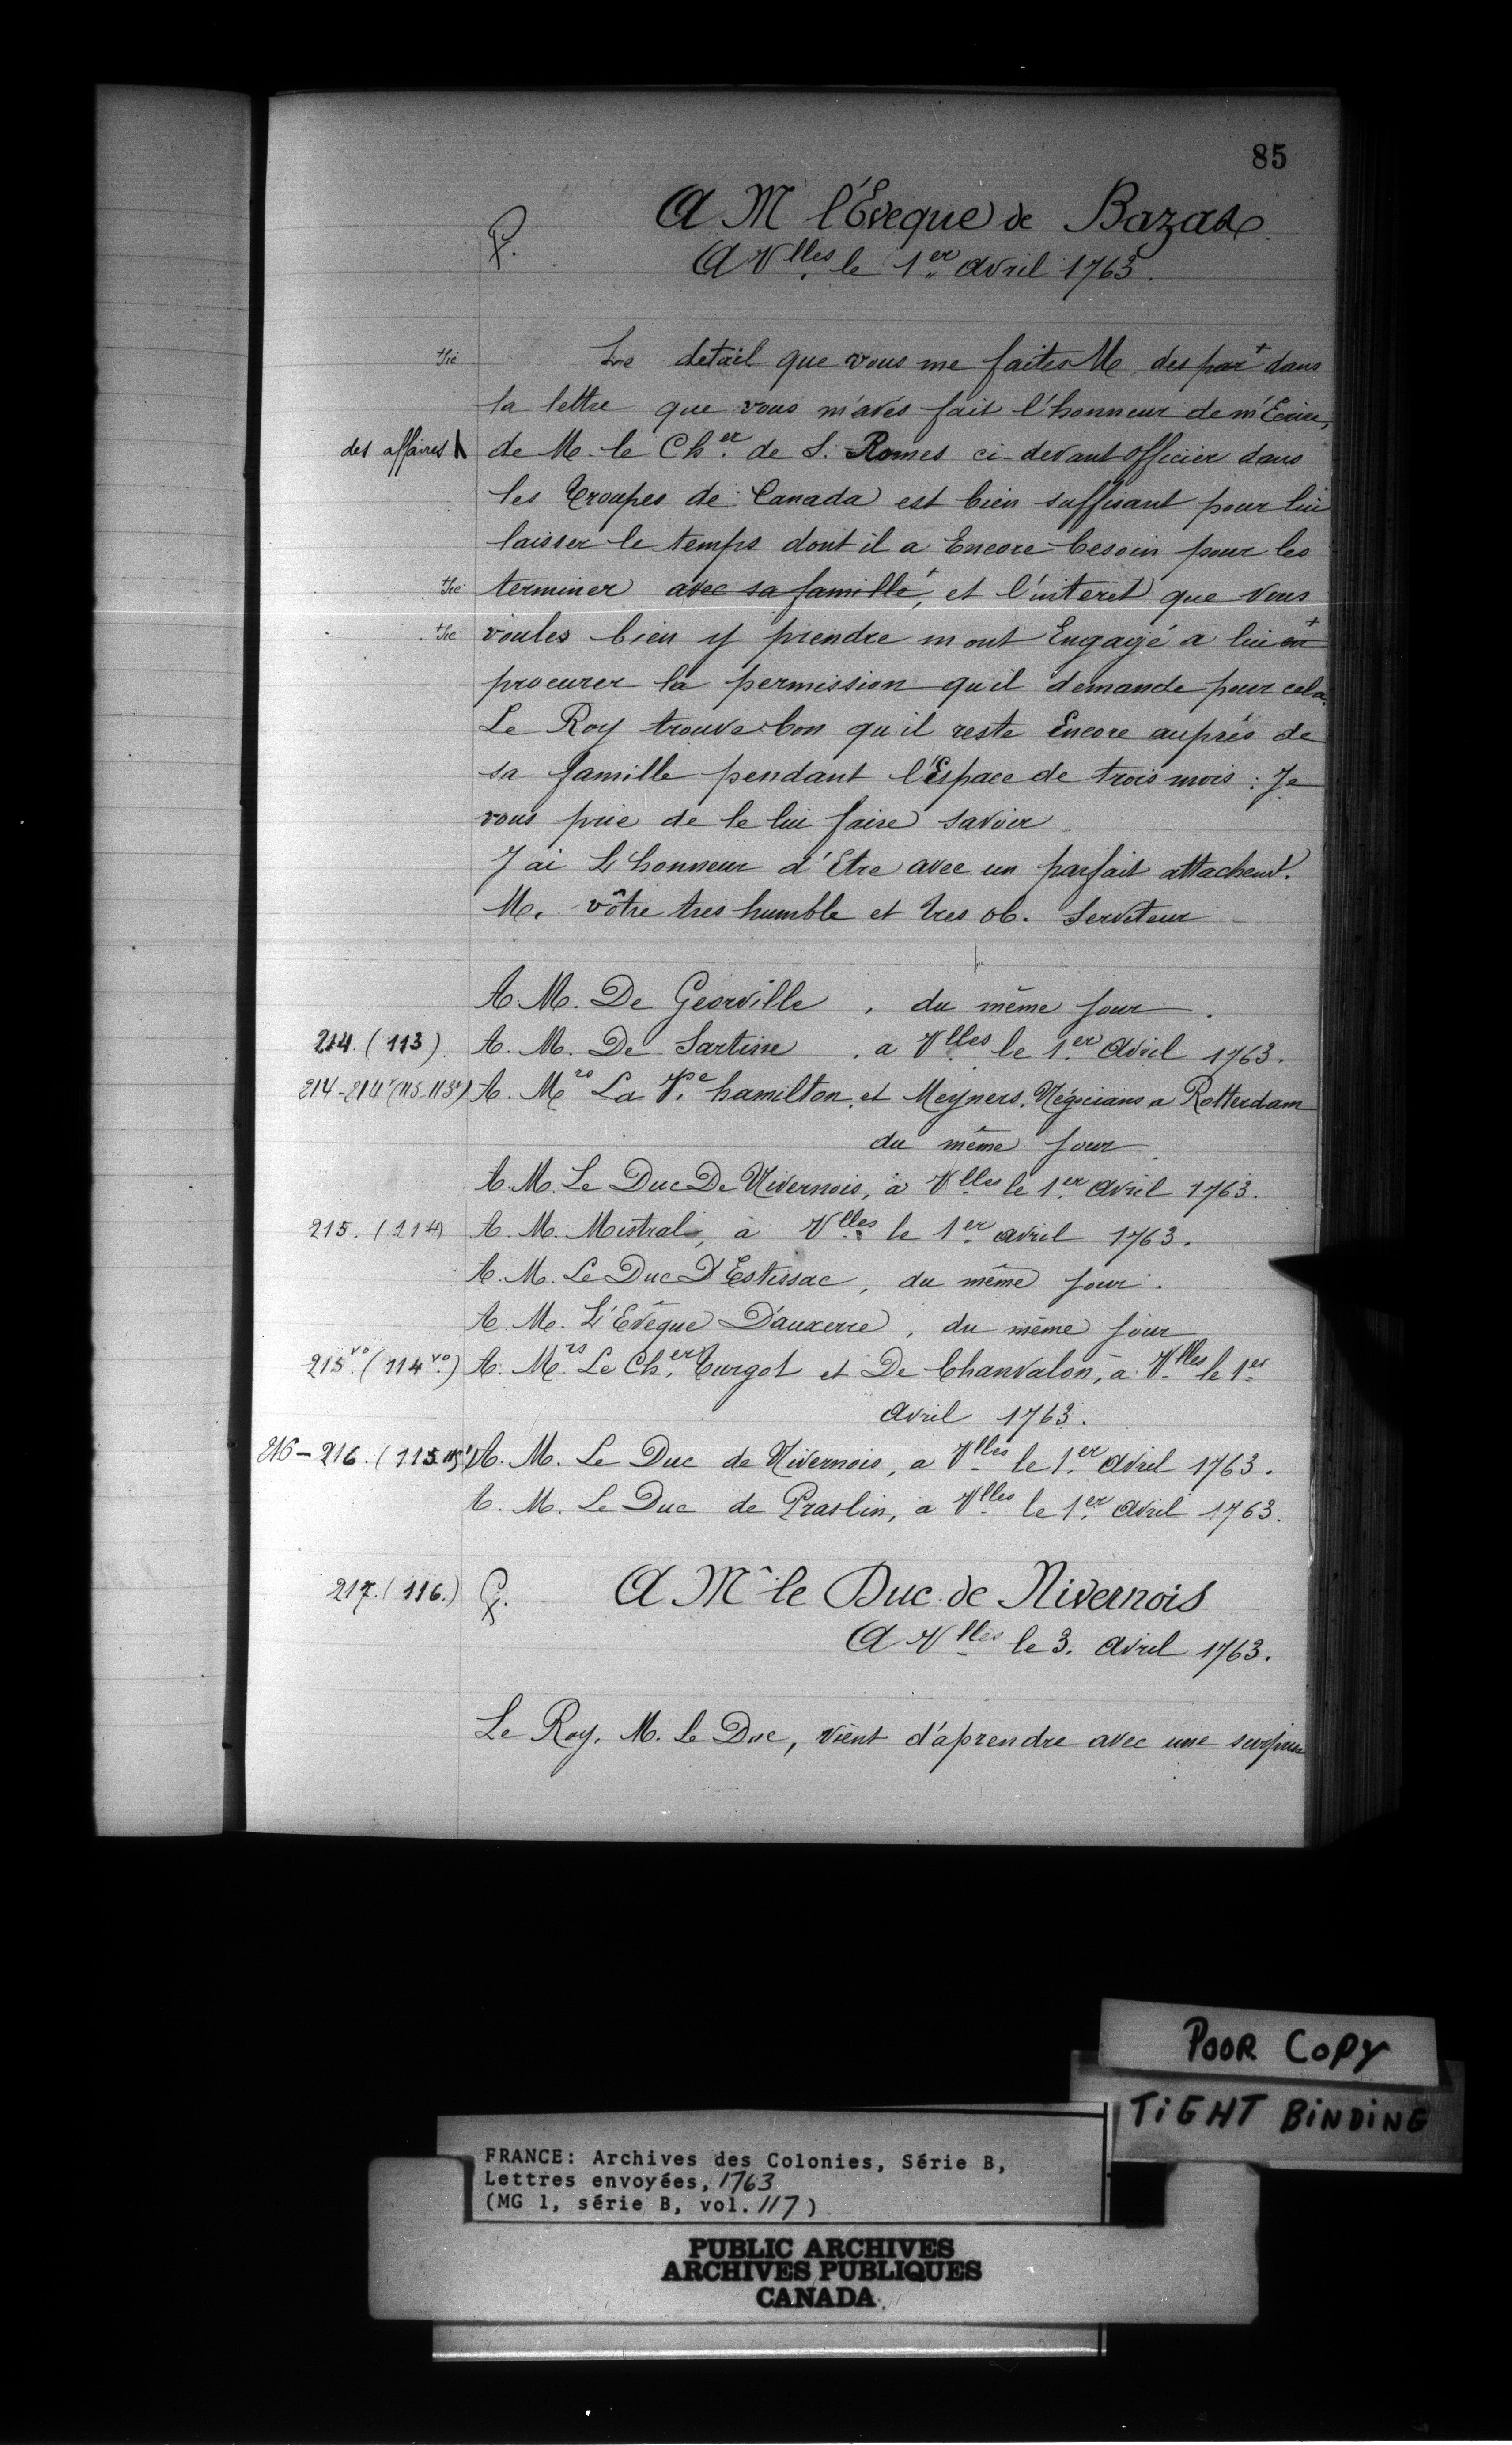 85
A M l'Eveque de Bazas
A Vlles le 1er avril 1763.
+Sic Le detail que vous me faites M des par+ dans
la lettre que vous m'avés fait l'honneur de m'Ecrire,
des affaires de M. le Cher de S. Romes ci-devant officier dans
les Troupes de Canada est bien suffisant pour lui
laisser le temps dont il a Encore besoin pour les
+Sic terminer avec sa famille+, et l'interet que vous
+Sic voules bien y prendre m ont Engagé a lui en+
procurer la permission qu'il demande pour cela.
Le Roy trouve bon qu'il reste Encore auprés de
sa famille pendant l'Espace de trois mois : Je
vous prie de le lui faire savoir
J'ai L'honneur d'Etre avec un parfait attachemt.
M. vôtre tres humble et tres ob. Serviteur
A. M. De Georville, du même jour.
214. (113) A. M. De Sartine, a Vlles le 1er Avril 1763.
214-214v (113-113v) A. Mrs La Ve hamilton et Meyners, Négocians a Rotterdam
du même jour.
A. M. Le Duc De Nivernois, à Vlles le 1er Avril 1763.
215. (114) A. M. Mistral, à Vlles le 1er avril 1763.
A. M. Le Duc D'Estissac, du même jour.
A. M. L'Evêque D'auxerre, du même jour
215vo. (114vo.) A. Mrs Le Cher Turgot et De Chanvalon, à Vlles le 1er
Avril 1763.
216-216. (115.115v) A. M. Le Duc de Nivernois, a Vlles le 1er Avril 1763.
A. M. Le Duc de Praslin, a Vlles le 1er Avril 1763.
217. (116.) A Mr le Duc de Nivernois
A Vlles le 3. Avril 1763.
Le Roy, M. le Duc, vient d'aprendre avec une surprise
POOR COPY
TIGHT BINDING
FRANCE: Archives des Colonies, Série B,
Lettres envoyées, 1763
(MG 1, série B, vol. 117)
PUBLIC ARCHIVES
ARCHIVES PUBLIQUES
CANADA